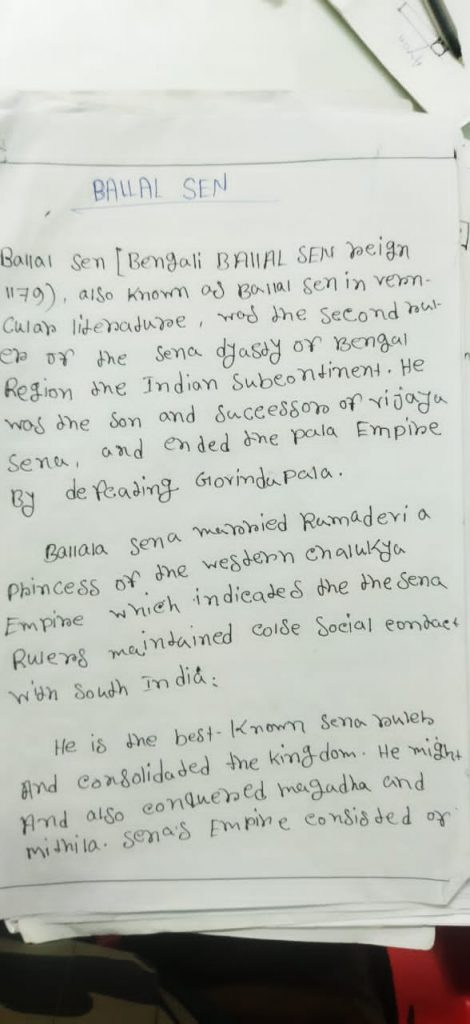 BALLAL SEN
Ballal Sen [Bengali BALLAL SEN reign
1179), also known as Ballal Sen in vern-
cular literature, was the second rul-
er of the Sena dyasdy of Bengal
Region the Indian Subcontinent. He
was the son and successor of vijaya
Sena, and ended the pala Empire
By defeading Govindupala.
Ballala Sena married Ramadevi a
Princess of the western chalukya
Empire which indicades the the Sena
Rulers maintained colse Social contact
with South India:
He is the best-known Sena ruler
And consolidated the kingdom. He might
And also conquered magadha and
mithila. Sena's Empire consisded of